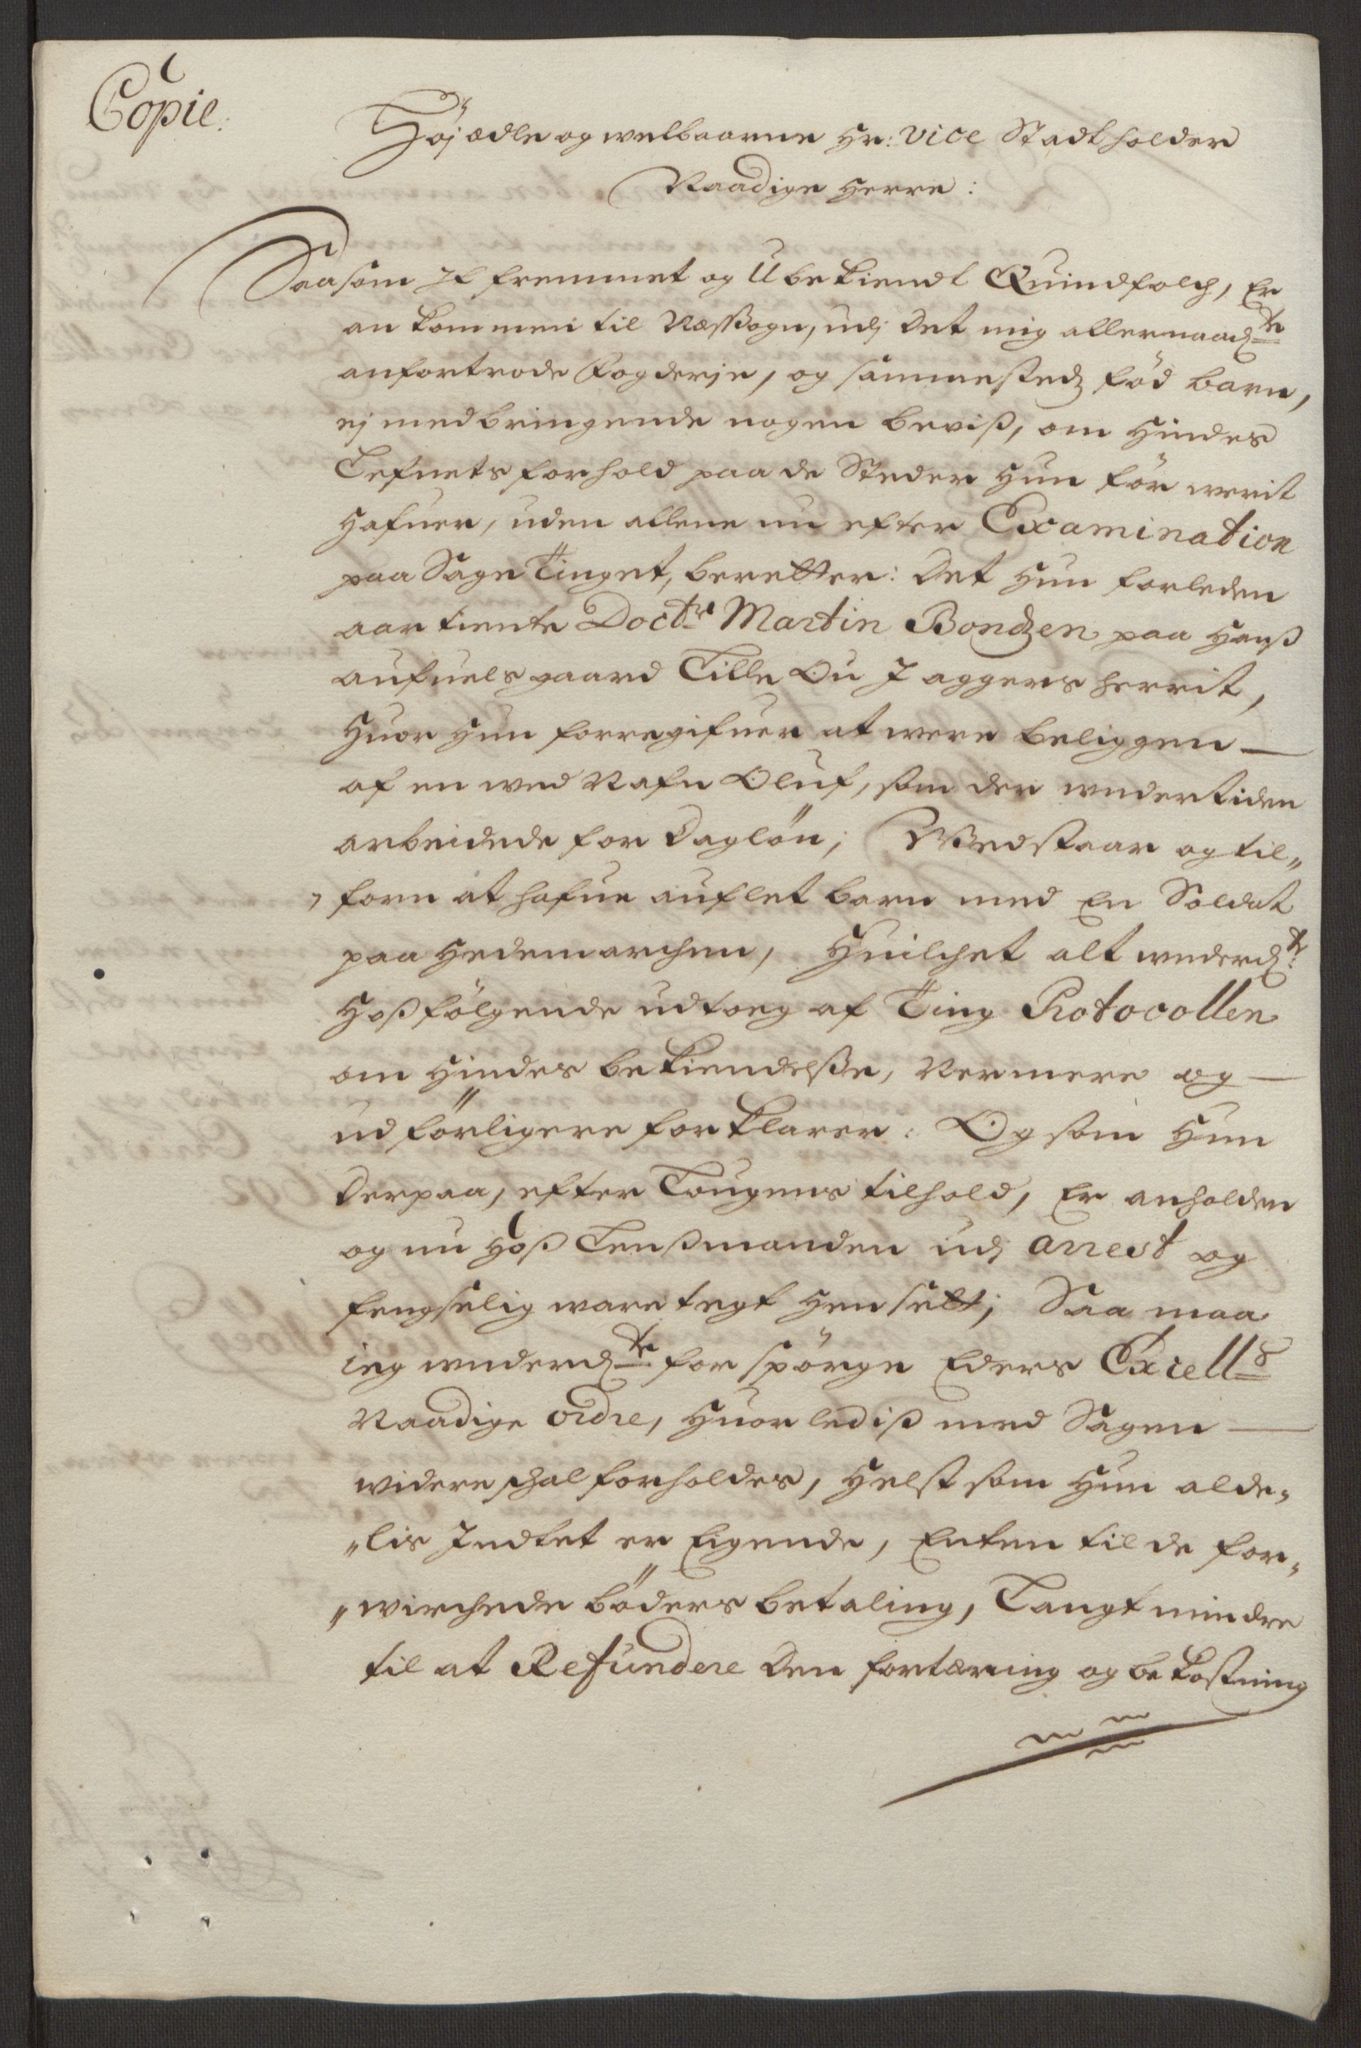 Copie:
Höjædle og welbaarne Hr: Vice Stadtholder
Naadige Herre:
Saasom It fremmet og Ubekiendt Quindfolch, Er
ankommen til Næssogn, udj det mig allernaadste
anfortrode Fogderje, og sammestedz föd barn,
ej medbringende nogen beviss, om Hindes
Lefnets forhold paa de Steder Hun för werit
Hafuer, uden allene nu efter Examination
paa Sage Tinget, beretter: Det Hun forleden
aar tiente Doctr Martin Bondzen paa Hanss
aufuelsgaard Lille Ou J aggers herrit,
Huor Hun forregifuer at were beliggen
af en wed Nafn Oluf, som der undertiden
arbeidede for Daglön; Wedstaar og til„
„forn at hafue auflet barn med En Soldat
paa Hedemarchen, Huilchet alt underdte:
Hossfölgende udtoeg af Ting Protocollen
om Hindes bekiendelsse, Nermere og
udförligere forklarer: Og som Hun
derpaa, efter Lougens tilhold, Er anholden
og nu Hoss Lenssmanden udj arrest og
fengselig waretegt Hensatt; Saa maa
ieg underdte forspörge Eders Excells
Naadige ordre, Huorlediss med Sagen
widere schal forholdes, Helst som Hun alde„
„lis Indtet er Eigende, Enten til de for„
„wirchede böders betaling, Langt mindre
til at Refundere den fortæring og bekostning